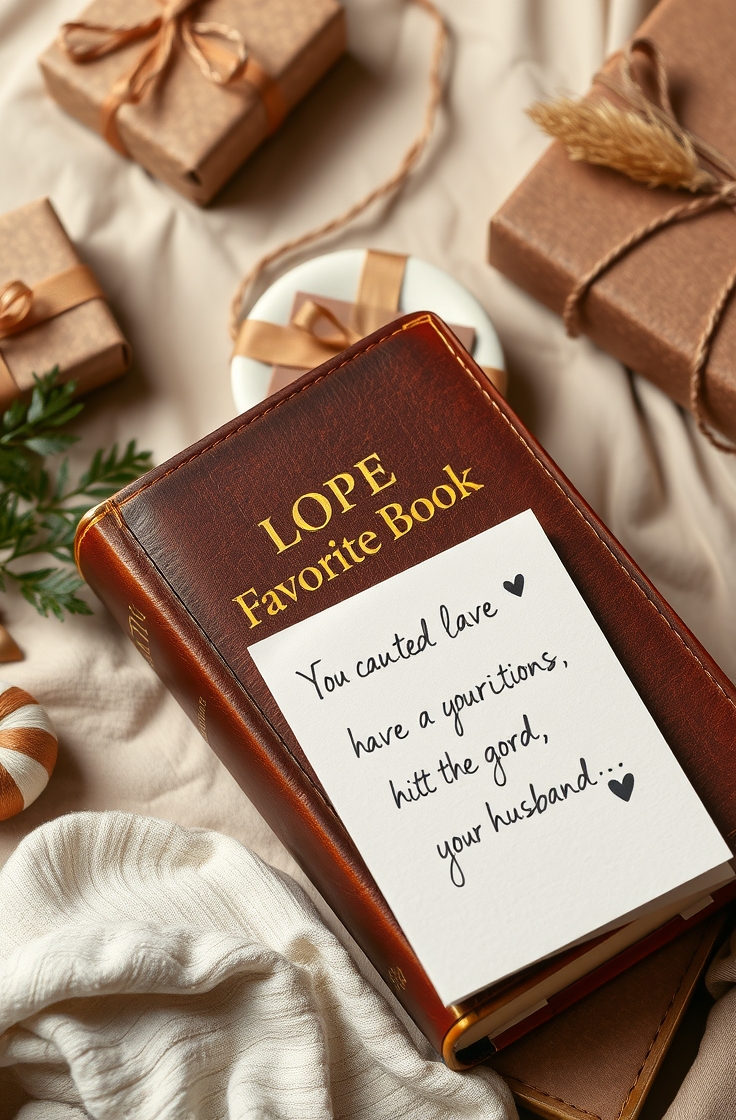 LOPE
Favorite Book
You cauted lave
have a youritions,
hitt the gord,
your husband...